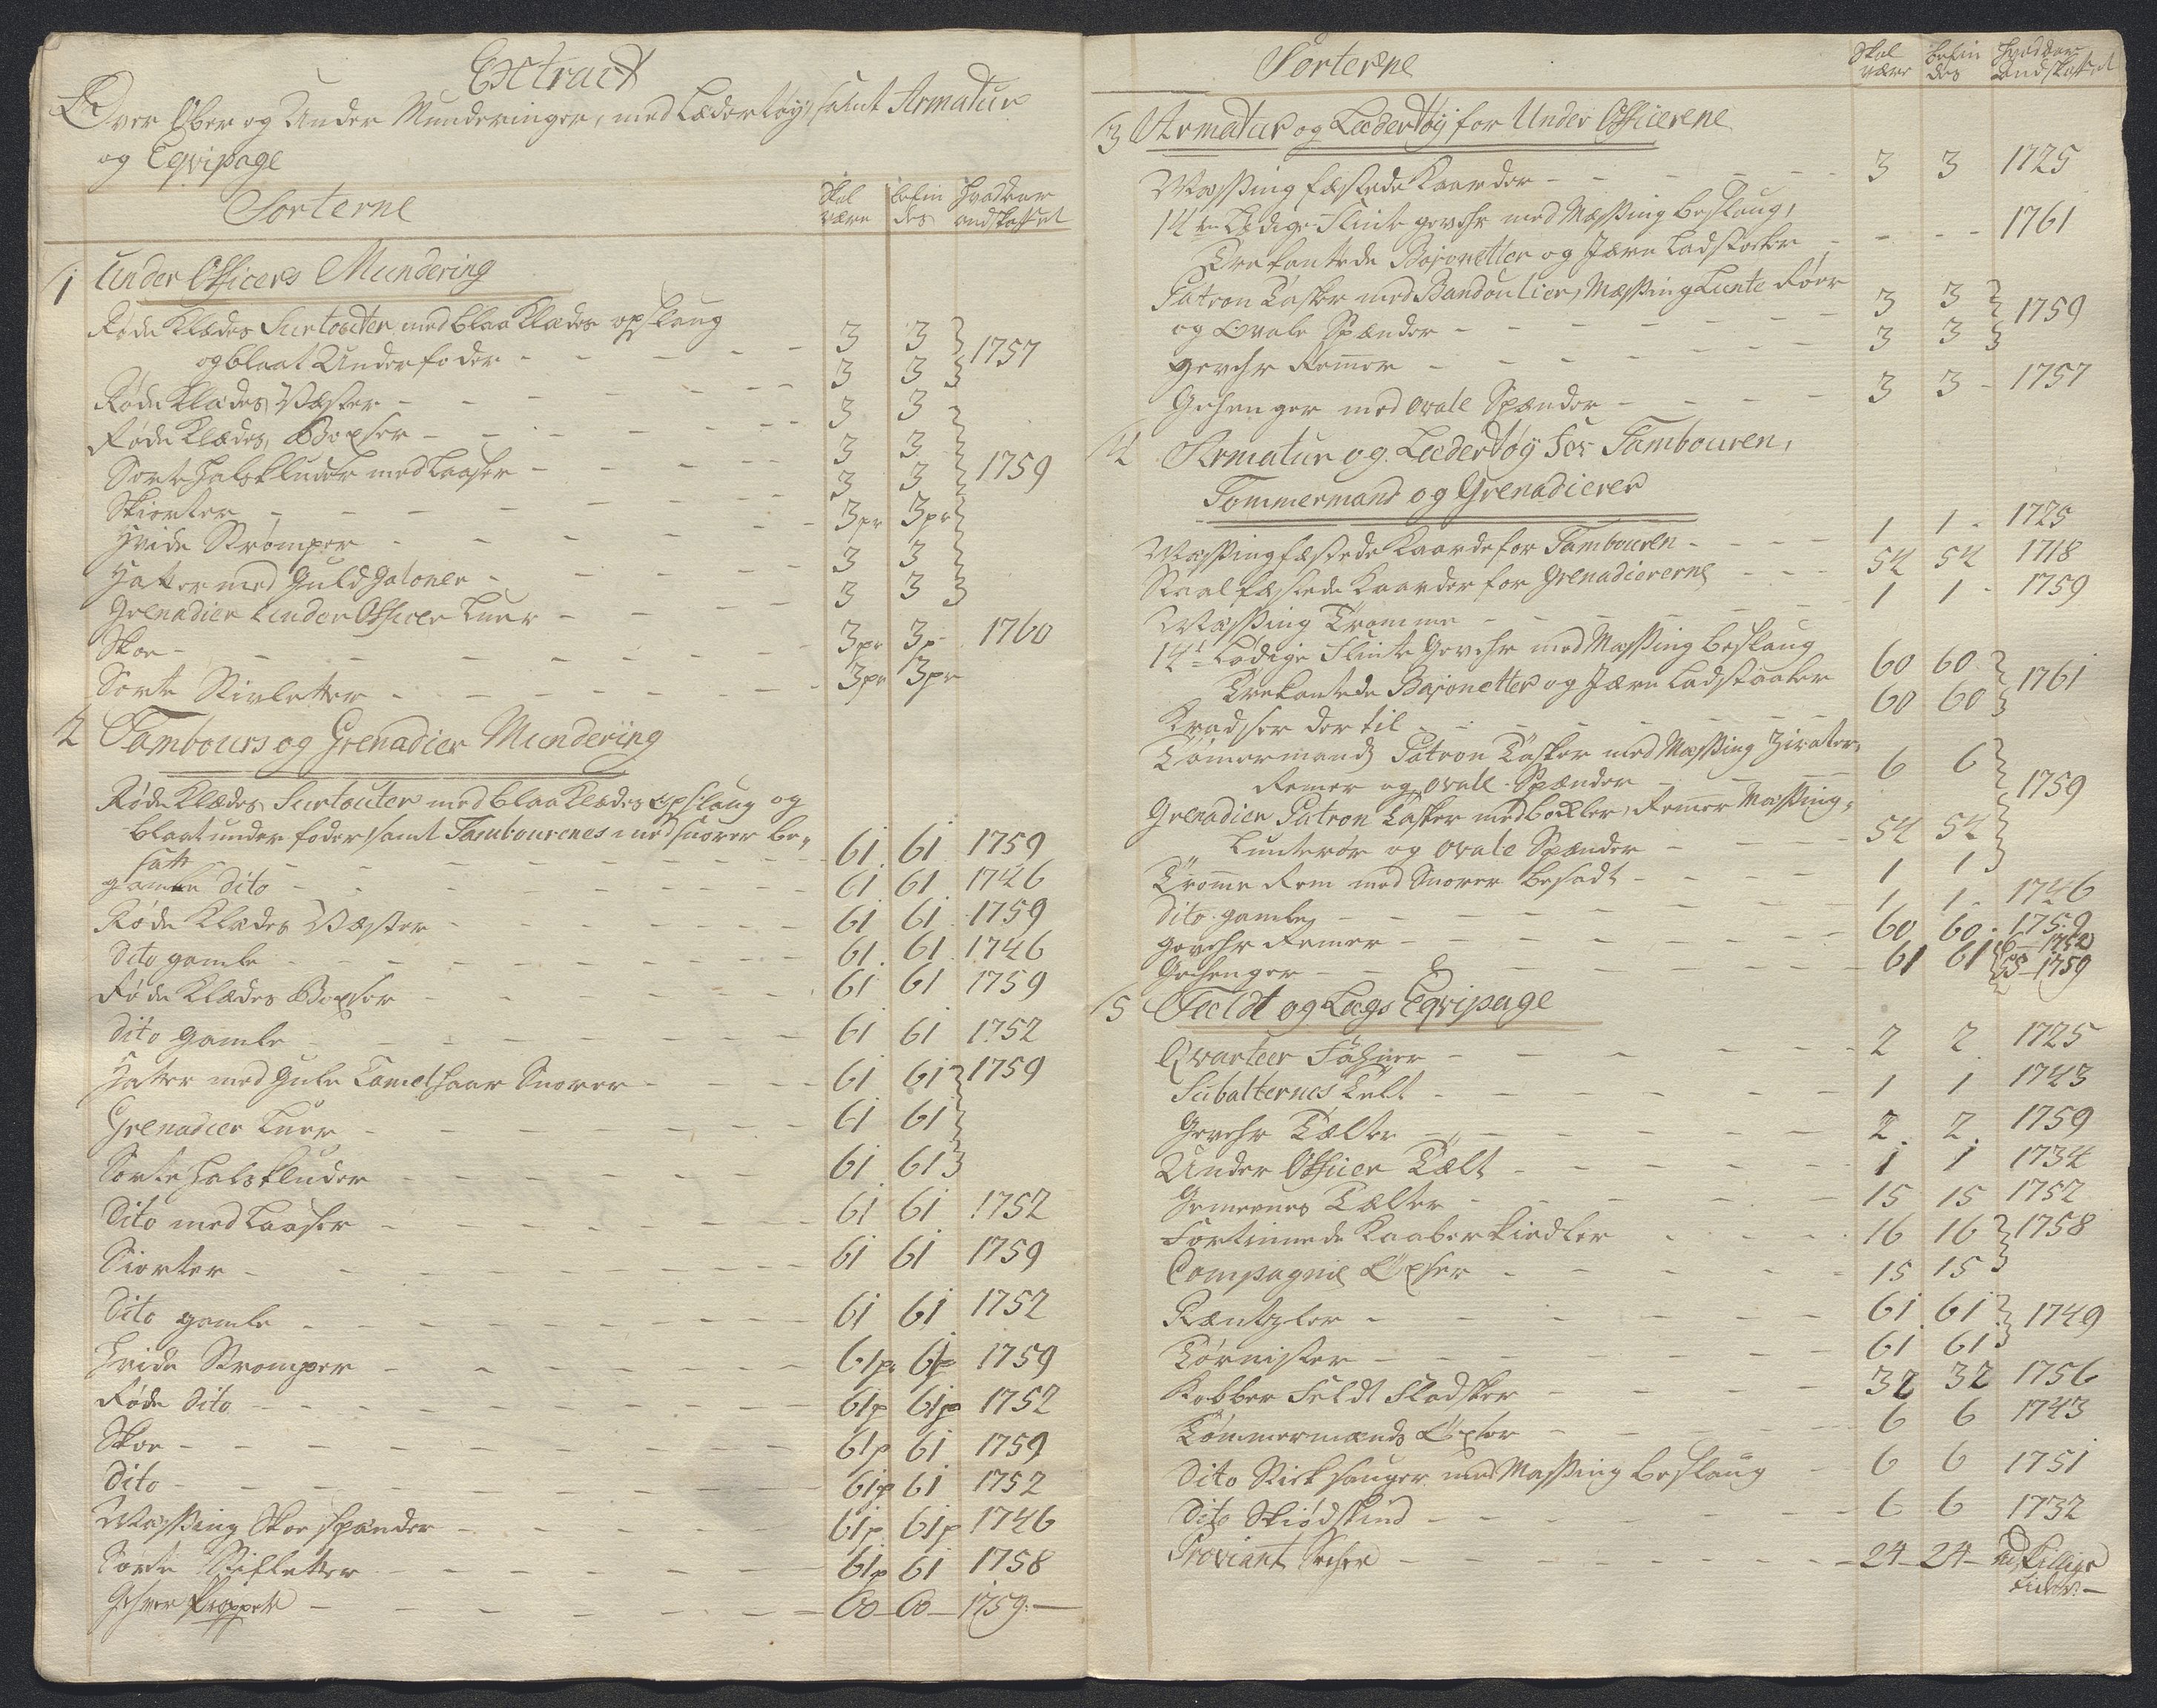 Extract
Over Ober og Under Munderinger, med Lædertøÿ, samt Armatur
og Eqvipage
Sorterne Skal være befindes Hvad aar andskaffet
1 Under Officers Mundering
Røde Klædes Surtouter med blaa Klædes opslaug
og blaat Underfoder - - - 3 3 1757
Røde Klædes Væster - - - 3 3
Røde Klædes Boxser - - - 3 3
Sorte Halsklude med Laaser - - - 3 3 1759
Skiorter - - - 3 3
Hvide Strømper - - - 3pr 3pr
Hatter med Guld Galoner - - - 3 3
Grenadier Under Officer Luer - - - 3 3
Skoe - - - 3pr 3p 1760
Sorte Stivletter - - - 3pr 3pr
2 Tambours og Grenadier Mundering
Røde Klædes Surtouter med blaa Klædes opslaug og
blaat under foder samt Tambourenes med snorer be„
satt - - - 61 61 1759
gamle Dito - - - 61 61 1746
Røde Klædes Væster - - - 61 61 1759
Dito gamle - - - 61 61 1746
Røde Klædes Boxser - - - 61 61 1759
Dito gamle - - - 61 61 1752
Hatter med Gule Camelhaar Snorer - - - 61 61 1759
Grenadier Luer - - - 61 61
Sorte Halskluder - - - 61 61
Dito med Laaser - - - 61 61 1752
Skiorter - - - 61 61 1759
Dito gamle - - - 61 61 1752
Hvide Strømper - - - 61pr 61p 1759
Røde Dito - - - 61p 61p 1752
Skoe - - - 61p 61 1759
Dito - - - 61p 61 1752
Messing Skoe spænder - - - 61p 61p 1746
Sorte Stifletter - - - 61p 61 1758
Gehver Propper - - - 60 60 1759
Sorterne Skal være befindes Hvad aar andskaffet
3 Armatur og Lædertøÿ for Under Officerene
Messing fæstede Kaarder - - - 3 3 1725
14 Lødige Flinte gevehr med Messing beslaug,
Trekantede Bajonetter og Jærn Ladstokker - - - 1761
Patron Tasker med Bandoulier, Messing Lunte Røer
og Ovale Spænder - - - 3 3 1759
gevehr Remer - - - 3 3
Gehenger med ovale Spænder - - - 3 3 1757
4 Armatur og Lædertøÿ for Tambouren,
Tommermand og Grenadierer
Messing fæstede Kaarde for Tambouren - - - 1 1 1725
Staal fæstede Kaarder for Grenadiererne - - - 54 54 1718
Messing Tromme - - - 1 1 1759
14 Lødige Flinte Gevehr med Messing beslaug
Trekantede Bajonetter og Jærn Ladstaaker 60 60 1761
Kradser der til - - - 60 60
Tømermands Patron Tasker med Messing Zirater,
Remer og ovale Spænder - - - 6 6 1759
Grenadier Patron Tasker med bøxler, Remer Messing„
Lunterør og ovale Spænder - - - 54 54
Tromme Rem med Snorer besadt - - - 1 1
Dito gamle - - - 1 1 1746
gevehr Remer - - - 60 60 1759
Gehenger - - - 61 61 6 - 1752
55 - 1759
5 Feldt og Lags Eqvipage
Qvarteer Fahner - - - 2 2 1725
Subalternes Telt - - - 1 1 1743
Gevehr Tælter - - - 2 2 1759
Under Officer Tælt - - - 1 1 1734
Gemeenes Tælter - - - 15 15 1752
Fortinnede Kaaberkiedler - - - 16 16 1758
Compagnie Øxser - - - 15 15
Rentzler - - - 61 61 1749
Tørnister - - - 61 61
Kobber Feldt Fladsker - - - 32 32 1756
Tømmermands Øxer - - - 6 6 1743
Dito Stiksauger med Messing beslaug - 6 6 1751
Dito Skiødskind - - - 6 6 1732
Proviant Secker - - - 24 24 adskillige
tider